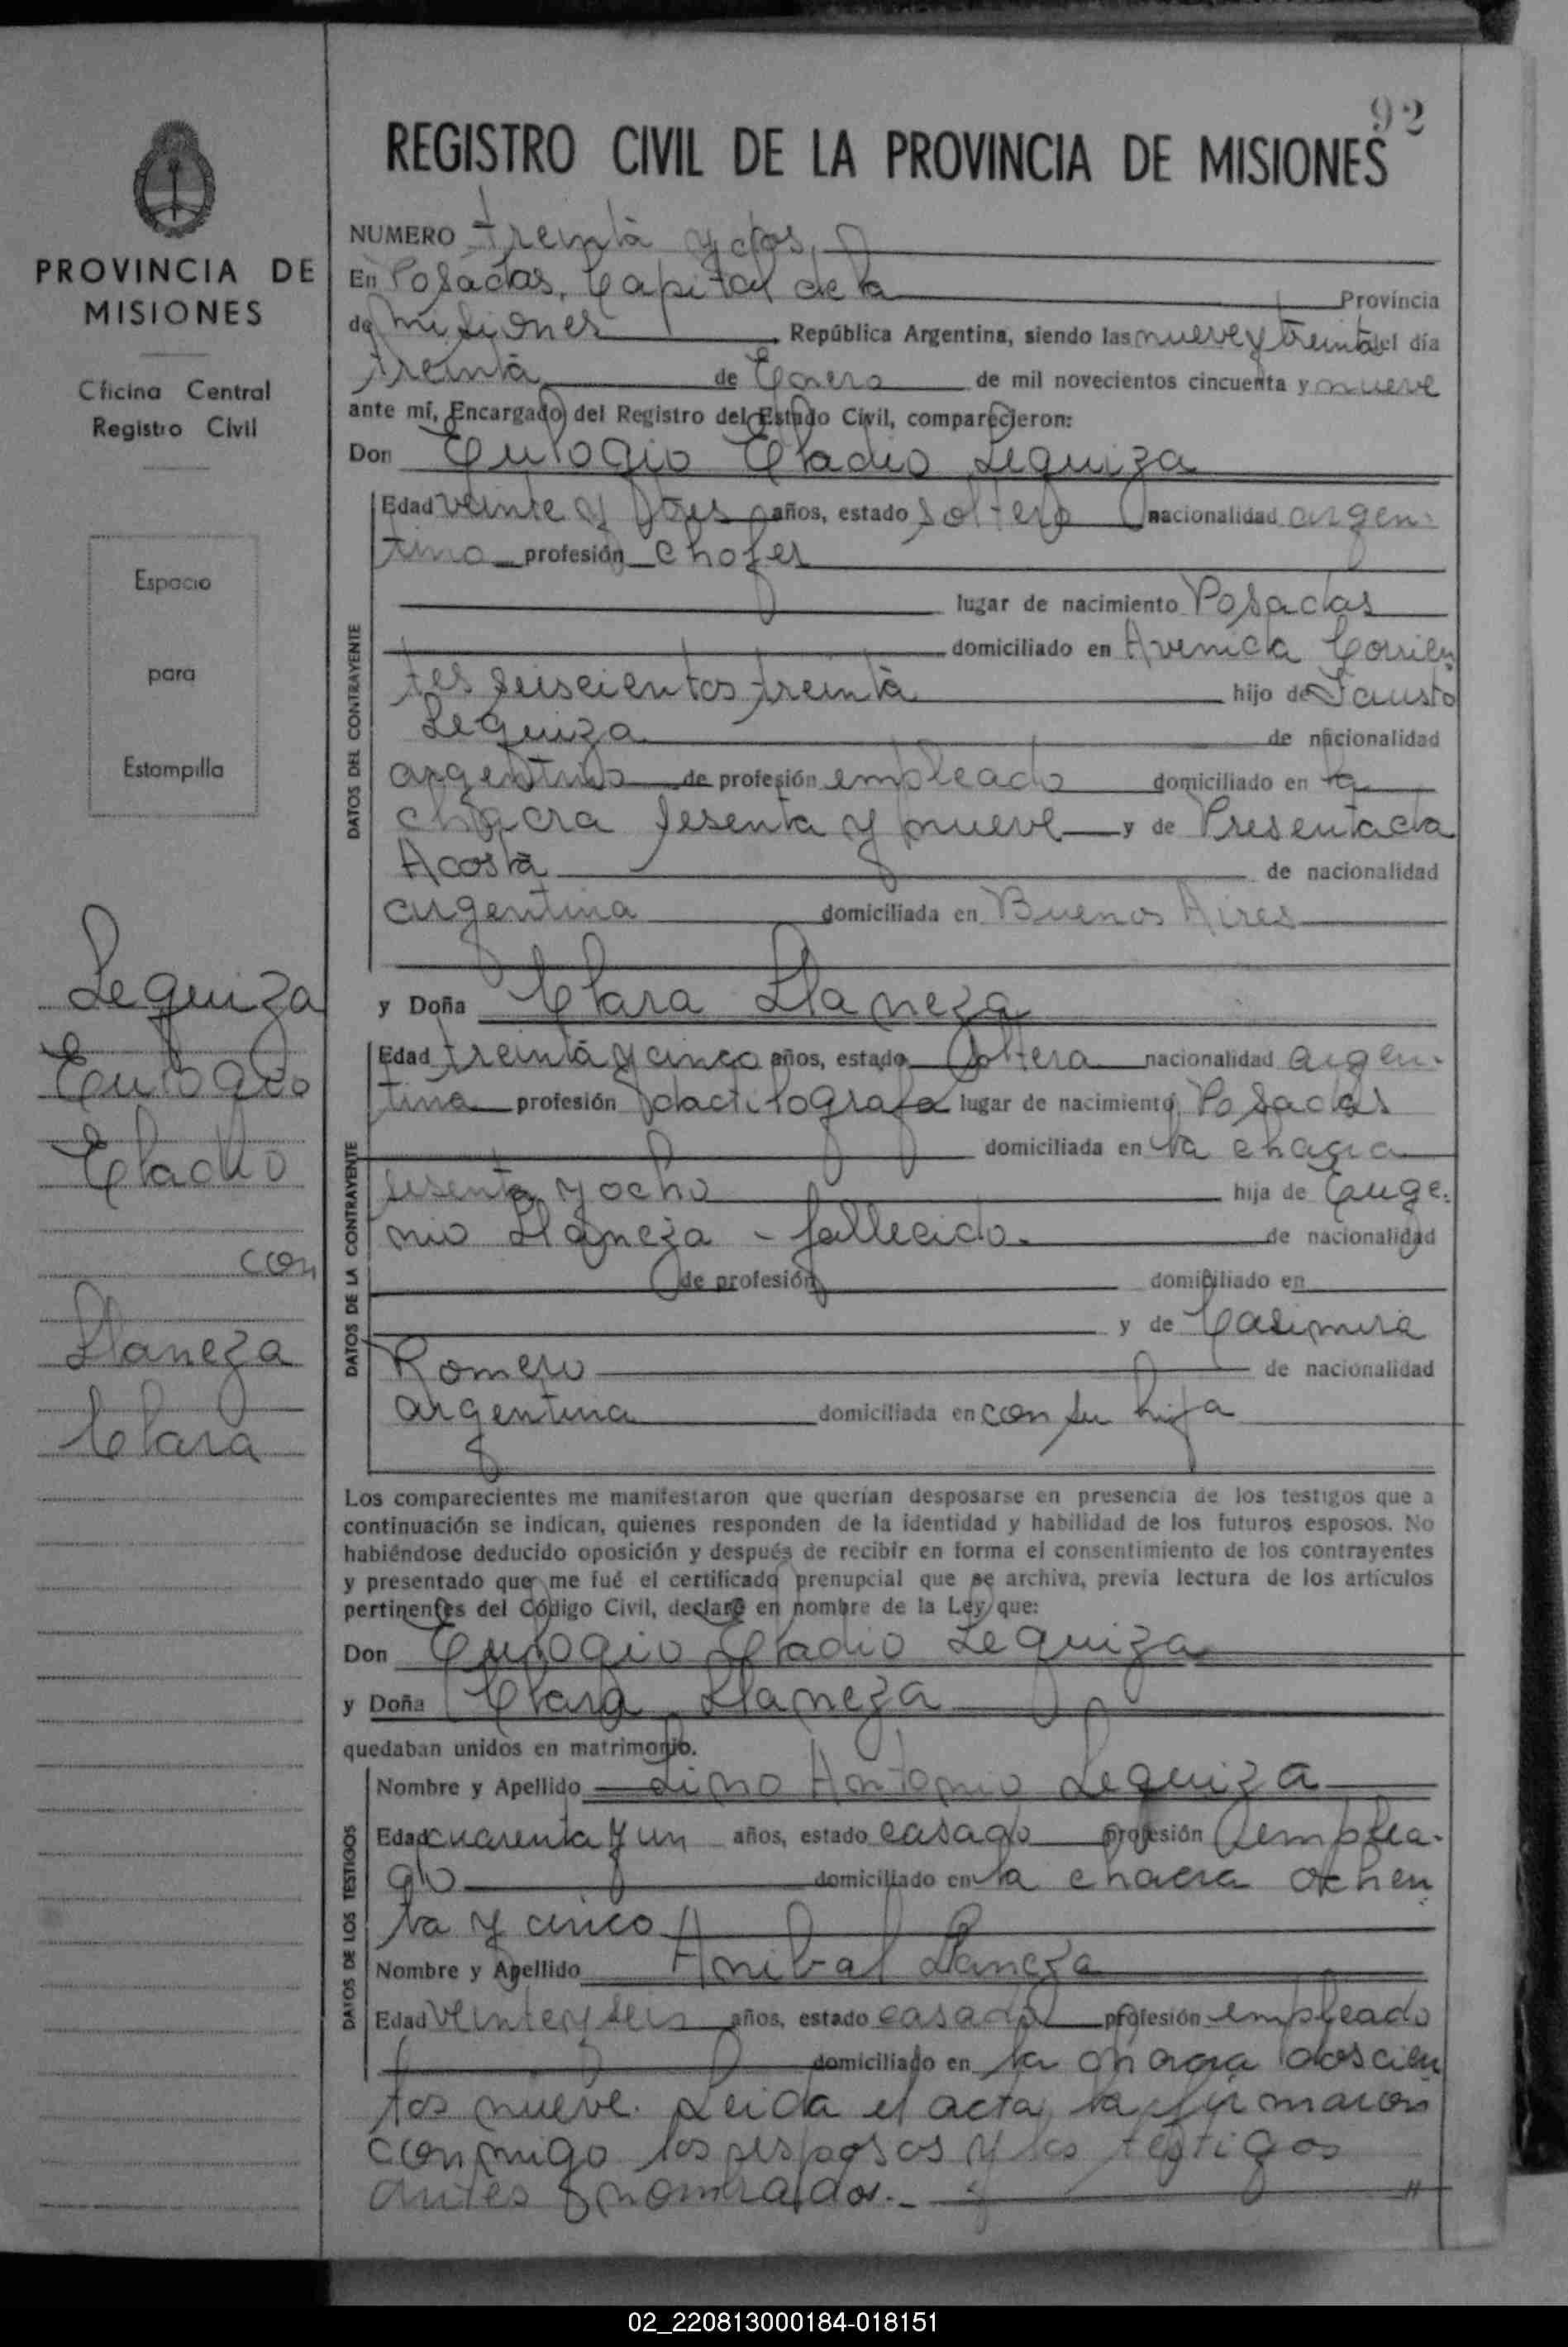 92
REGISTRO CIVIL DE LA PROVINCIA DE MISIONES
PROVINCIA DE
MISIONES
Oficina Central
Registro Civil
Espacio
para
Estampilla
Leguiza
Eulogio
Eladio
con
Llaneza
Clara
NUMERO treinta y dos
En Posadas, Capital de la Provincia
de Misiones República Argentina, siendo las nueve y treinta del día
treinta de Enero de mil novecientos cincuenta y nueve
ante mí, Encargado del Registro del Estado Civil, comparecieron:
Don Eulogio Eladio Leguiza
DATOS DEL CONTRAYENTE
Edad veinte y tres años, estado soltero nacionalidad argen-
tino profesión chofer
lugar de nacimiento Posadas
domiciliado en Avenida Corrien
tes seiscientos treinta hijo de Fausto
Leguiza de nacionalidad
argentino de profesión empleado domiciliado en la
chacra sesenta y nueve y de Presentada
Acosta de nacionalidad
argentina domiciliada en Buenos Aires
y Doña Clara Llaneza
DATOS DE LA CONTRAYENTE
Edad treinta y cinco años, estado soltera nacionalidad argen-
tina profesión dactilografa lugar de nacimiento Posadas
domiciliada en la chacra
sesenta y ocho hija de Euge-
nio Llaneza - fallecido. de nacionalidad
de profesión domiciliado en
y de Casimira
Romero de nacionalidad
argentina domiciliada en con su hija
Los comparecientes me manifestaron que querían desposarse en presencia de los testigos que a
continuación se indican, quienes responden de la identidad y habilidad de los futuros esposos. No
habiéndose deducido oposición y después de recibir en forma el consentimiento de los contrayentes
y presentado que me fué el certificado prenupcial que se archiva, previa lectura de los artículos
pertinentes del Código Civil, declaro en nombre de la Ley que:
Don Eulogio Eladio Leguiza
y Doña Clara Llaneza
quedaban unidos en matrimonio.
DATOS DE LOS TESTIGOS
Nombre y Apellido Lino Antonio Leguiza
Edad cuarenta y un años, estado casado profesión emplea-
do domiciliado en la chacra ochen
ta y cinco
Nombre y Apellido Anibal Llaneza
Edad veinte y seis años, estado casado profesión empleado
domiciliado en la chacra doscien
tos nueve. Leida el acta, la firmaron
conmigo los esposos y los testigos
antes nombrados.-
02_220813000184-018151